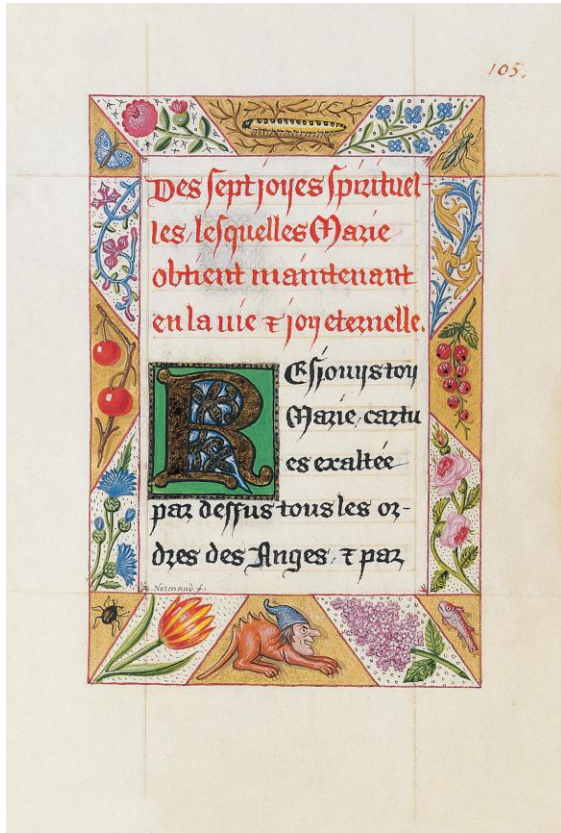 105.
Des sept joyes spirituel-
les, lesquelles Marie
obtient maintenant
en la vie & joy eternelle.
Resjouys toy
Marie, car tu
es exaltée
par dessus tous les or-
dres des Anges, & par
Normand f.